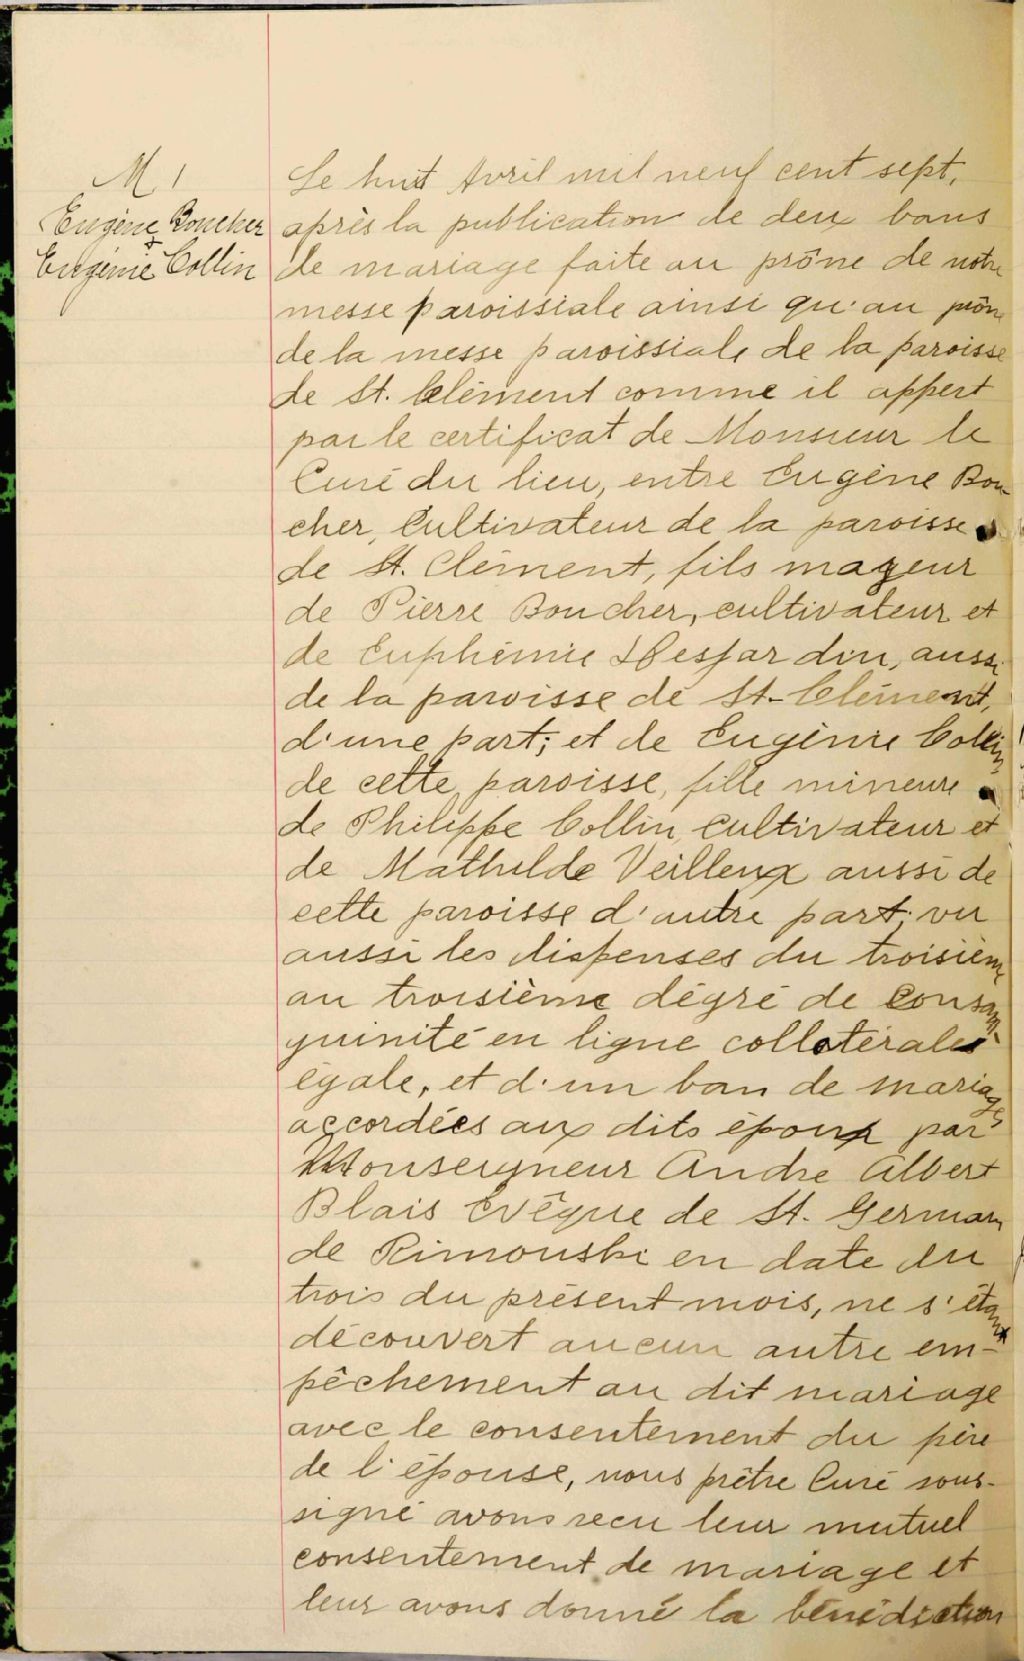 M 1
Eugène Boucher
&
Eugénie Collin
Le huit Avril mil neuf cent sept,
après la publication de deux bans
de mariage faite au prône de notre
messe paroissiale ainsi qu'au prône
de la messe paroissiale de la paroisse
de St. Clément comme il appert
par le certificat de Monsieur le
Curé du lieu, entre Eugène Bou-
cher, Cultivateur de la paroisse
de St. Clément, fils majeur
de Pierre Boucher, cultivateur et
de Euphémie Desjardin, aussi
de la paroisse de St-Clément,
d'une part; et de Eugénie Collin
de cette paroisse, fille mineure
de Philippe Collin, Cultivateur et
de Mathilde Veilleux aussi de
cette paroisse d'autre part, vu
aussi les dispenses du troisième
au troisième dégré de Consan-
guinité en ligne collatérale
égale, et d'un ban de mariage
accordées aux dits époux par
Monseigneur André Albert
Blais Evêque de St. Germain
de Rimouski en date du
trois du présent mois, ne s'étant
découvert aucun autre em-
pêchement au dit mariage
avec le consentement du père
de l'épouse, nous prêtre Curé sous-
signé avons recu leur mutuel
consentement de mariage et
leur avons donné la bénédiction